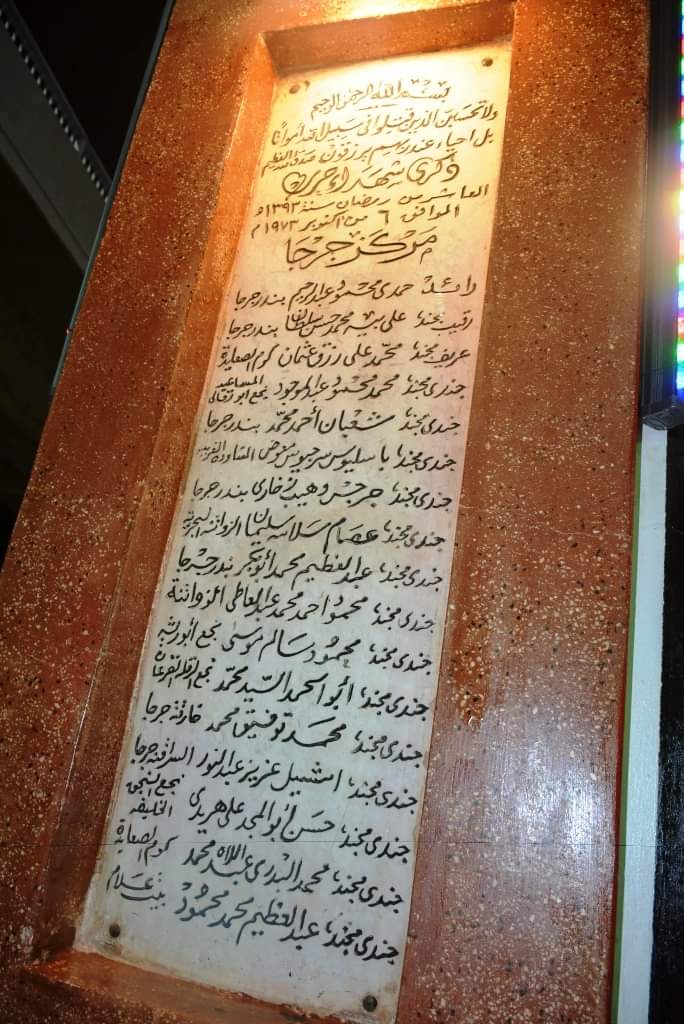 بسم الله الرحمن الرحيم
ولا تحسبن الذين قتلوا فى سبيل الله أمواتا
بل احياء عند ربهم يرزقون صدق الله العظيم
ذكرى شهداء حرب
العاشر من رمضان سنة ١٣٩٣ ه
الموافق ٦ من اكتوبر ١٩٧٣ م
مركز جرجا
رائد حمدى محمود عبد الرحيم بندر جرجا
رقيب مجند، على محمد حسن سلطان بندر جرجا
عريف مجند، محمد على رزق عثمان كوم الصعايدة
جندى مجند، محمد محمود عبد الموجود المساعيد نجع ابو زقالى
جندى مجند، شعبان أحمد محمد بندر جرجا
جندى مجند، باسليوس سرجيوس معوض
جندى مجند، جرجس وهيب بندر جرجا
جندى مجند، عصام سلامه سليمان الزواتنة البحرية
جندى مجند، عبد العظيم محمد أبو بكر بندر جرجا
جندى مجند، محمود احمد محمد عبد العاطى الزواتنة
جندى مجند، محمود سالم موسى نجع أبو رشيد
جندى مجند، أبو الحمد السيد محمد نجع
جندى مجند، محمد توفيق محمد جرجا
جندى مجند، عزيز عبد النور جرجا
جندى مجند، حسن أبو المجد على هريدى نجع الخليفه
جندى مجند، محمد البدرى عبد اللاه محمد كوم الصعايدة
جندى مجند، عبد العظيم محمد محمود بيت علام